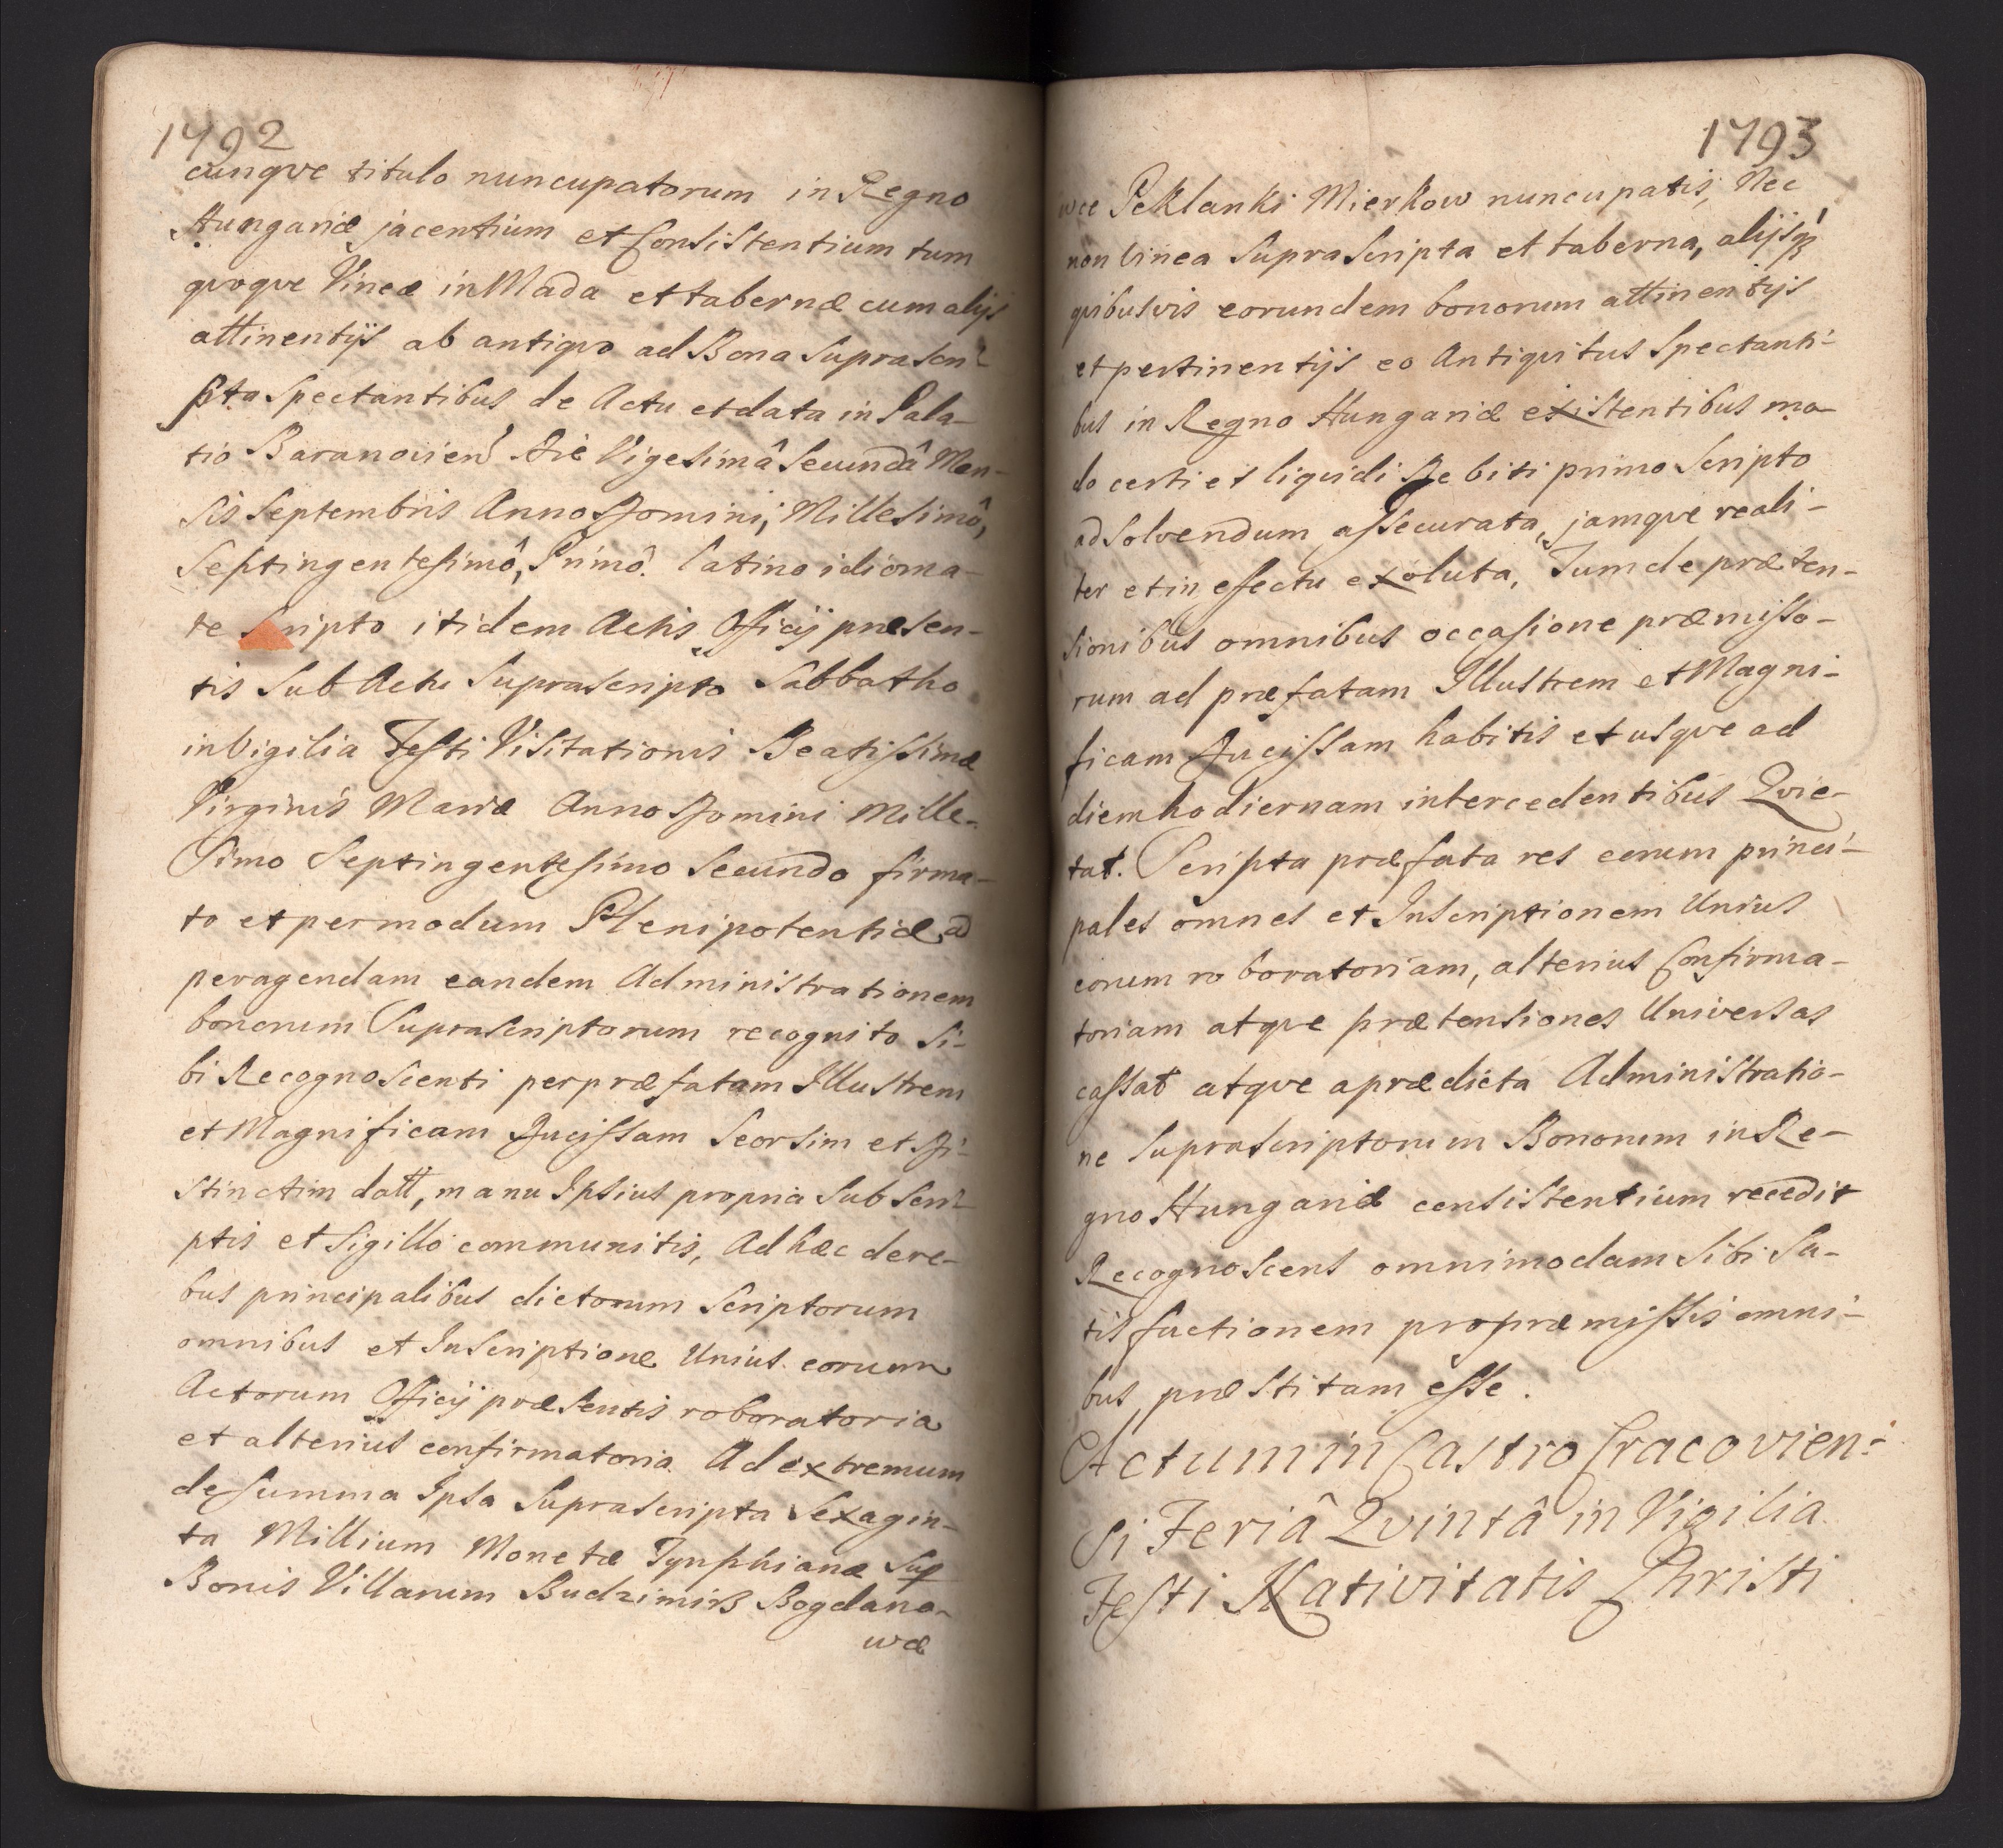 1792
cunqve titulo nuncupatorum in Regno
Hungariæ jacentium et Consistentium tum
qvoqve Vineæ in Mada et tabernæ cum alijs
attinentijs ab antiqvo ad Bona Suprascri-
pta Spectantibus de Actu et data in Pala-
tio Baranovien die Vigesimâ Secundâ Men-
sis Septembris Anno Domini, Millesimô,
Septingentesimô, Primô. Latino idioma-
te Scripto itidem Actis Officij præsen-
tis Sub Actu Suprascripto Sabbatho
in Vigilia Festi Visitationis Beatissimæ
Virginis Mariæ Anno Domini Mille-
simo Septingentesimo Secundo firma-
to et per modum Plenipotentiæ ad
peragendam eandem Administrationem
bonorum Suprascriptorum recognito Si-
bi Recognoscenti per præfatam Illustrem
et Magnificam Ducissam Seorsim et Di-
stinctim datt, manu Ipsius propria Subscri-
ptis et Sigillo communitis, Ad hæc de re-
bus principalibus dictorum Scriptorum
omnibus et Inscriptione Unius eorum
Actorum Officij præsentis roboratoria
et alterius confirmatoria. Ad extremum
de Summa Ipsa Suprascripta Sexagin-
ta Millium Monetæ Tynphianæ Sup
Bonis Villarum Budzimirz Bogdano-
wæ
1793
wce Peklanki Mierkow nuncupatis, Nec
non Vinea Suprascripta et taberna, alijsq
qvibusvis eorundem bonorum attinentijs
et pertinentijs eo Antiqvitus Spectanti-
bus in Regno Hungariæ existentibus mo-
do certi et liqvidi Debiti primo Scripto
ad Solvendum assecurata, jamqve reali-
ter et in effectu exoluta, Tum de præten-
sionibus omnibus occasione præmisso-
rum ad præfatam Illustrem et Magni-
ficam Ducissam habitis et usqve ad
diem hodiernam intercedentibus Qvie-
tat. Scripta præfata res eorum princi-
pales omnes et Inscriptionem Unius
eorum roboratoriam, alterius Confirma-
toriam atqve prætensiones Universas
cassat atqve a prædicta Administratio-
ne Suprascriptorum Bonorum in Re-
gno Hungariæ consistentium recedit
Recognoscens omnimodam Sibi Sa-
tisfactionem pro præmissis omni-
bus præstitam esse.
Actum in Castro Cracovien-
si Feriâ Qvintâ in Vigilia
Festi Nativitatis Christi